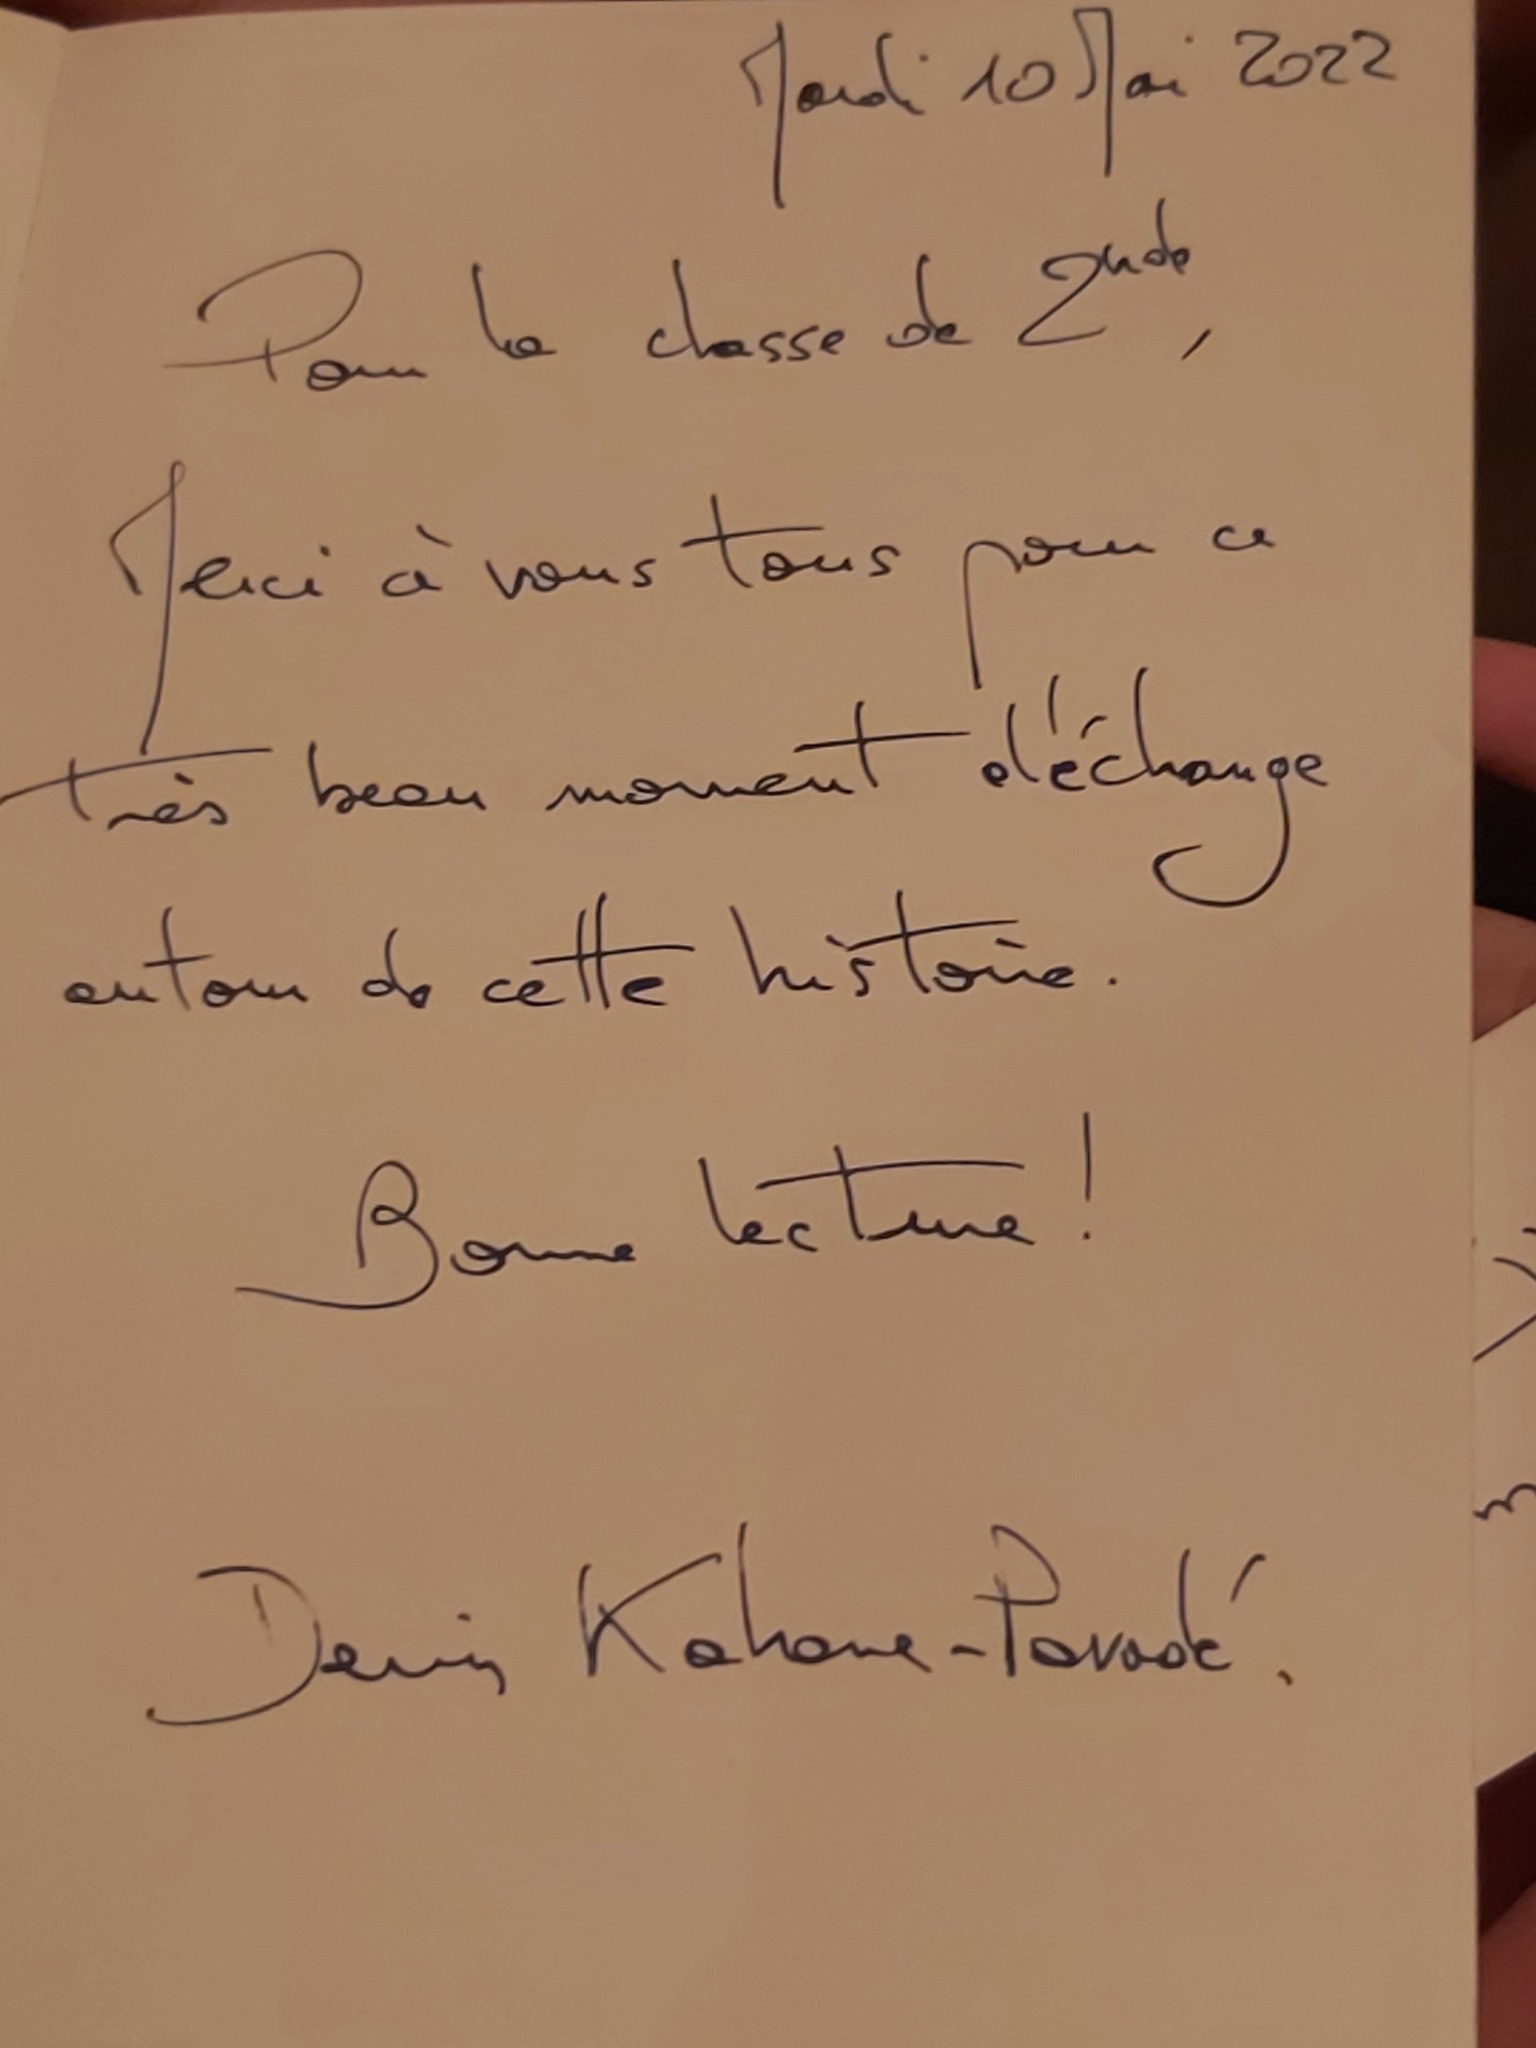 Mardi 10 Mai 2022
Pour la classe de 2nde,
Merci à vous tous pour ce
très beau moment d'échange
autour de cette histoire.
Bonne lecture !
Denis Kahane-Pavadé.